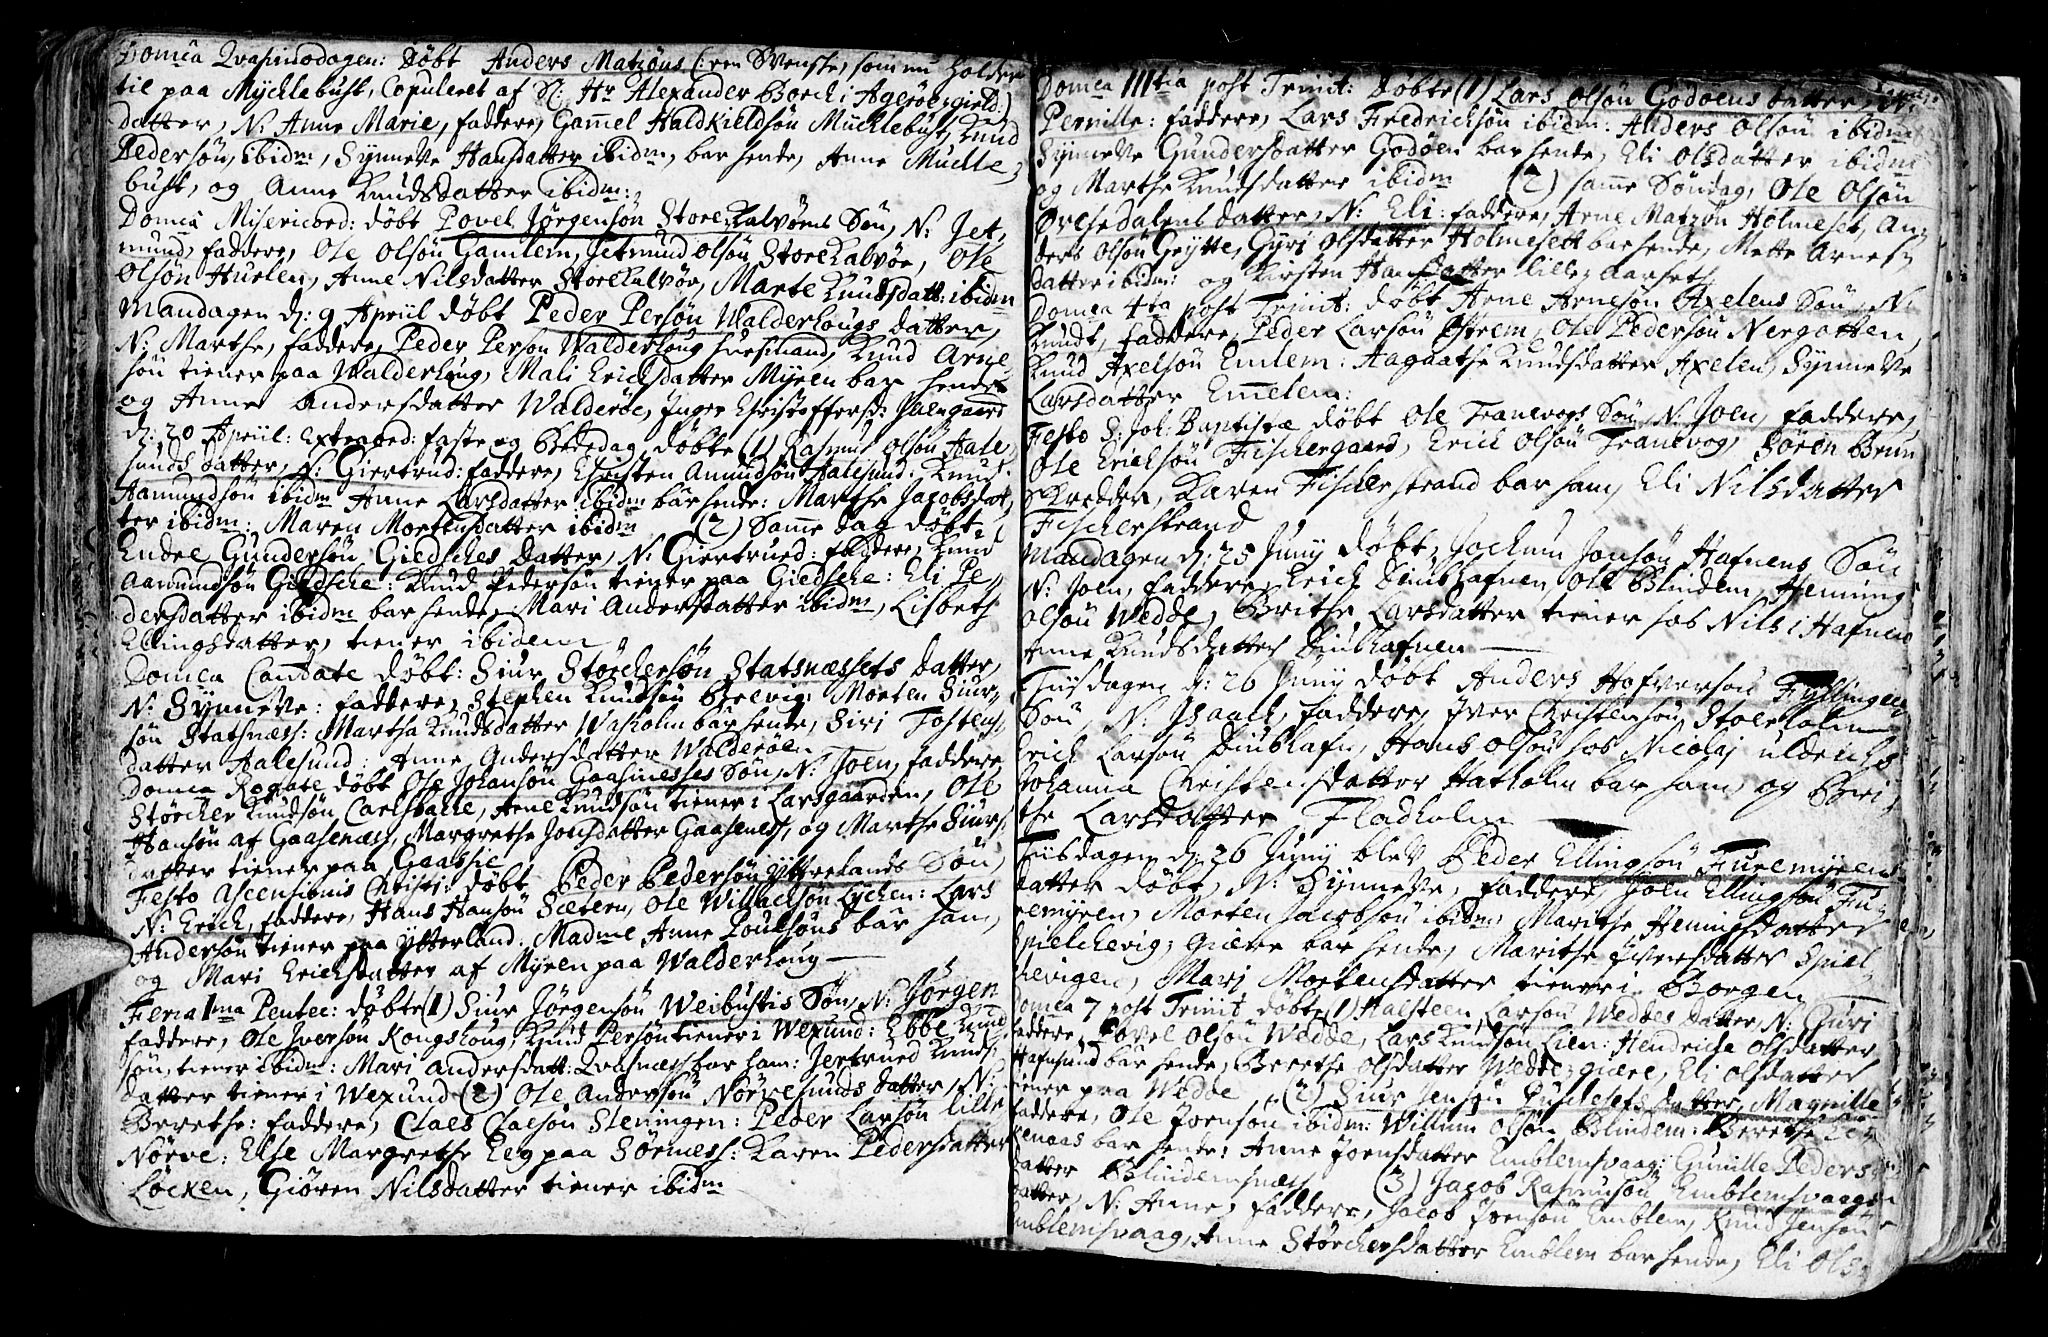 Domca Qvasimodogen: Døbt Anders Matzøns (: en Svenske, som nu holder
til paa Myklebust, Copuleret af Sl: Hr Alexander Borch i Agerøe gield)
datter, N: Anne Marie, faddere, Gamel Haldkieldsøn Mücklebust, Knud
Pedersøn, ibidm, Synneve Hansdatter ibidm, bar hende, Anne Muckle-
bust, og Anne Knudsdatter ibidm:
Domca Misericord: døbt Povel Jørgensøn Store Kalvøens Søn, N: Jet-
mund, faddere, Ole Olsøn Gamlem, Jetmund Olsøn Store Kalvøe, Ole
Olsøn Huelen, Anne Nilsdatter Store Kalvøe, Marte Knudsdatt: ibidm
Mandagen d: 9 Apriil døbt Peder Persøn Walderhougs datter,
N: Marthe, faddere, Peder Person Walderhoug huusmand, Knud Arne-
søn tiener paa Walderhoug, Mali Erichsdatter Myren bar hende
og Anne Andersdatter Walderøe, Inger Christoffersd: Joengaard
d: 20 Apriil: Extraord: faste og Bededag døbte (1) Rasmus Olsøn Aale-
sunds datter, N: Giertrud: faddere, Christen Amundsøn Aalesund: Knud
Aamundsøn ibidm Anne Larsdatter ibidm bar hende: Marthe Jacobsdat-
ter ibidm: Maren Mortensdatter ibidm (2) Same dag døbt
Endre Gundersøn Giedsches datter, N: Giertrued: faddere, Knud
Aamundsøn Giedsche: Knud Pedersøn tiener paa Giedsche: Eli Pe-
dersdatter ibidm bar hende, Mari Andersdatter ibidm, Lisbeth
Ellingsdatter, tiener ibidem
Domca Cantate døbt: Siur Størchersøn Statsnæssets datter,
N: Synneve: faddere, Stephen Knudsøn Brevig: Morten Siur-
søn Statsnæss: Martha Knudsdatter Washolm bar hende, Siri Tostens-
datter Aalesund: Anne Andersdatter Walderøen
Domca Rogate døbt Ole Johansøn Gaasnesses Søn, N: Joen, faddere,
Størcher Knudsøn, Carlsballe, Arne Knudsøn tiener i Larsgaarden, Ole
Hansøn af Gaasenæss, Margrethe Jonsdatter Gaasenes, og Marthe Siurs-
datter tiener paa
Festo Ascensionis Christi: døbt Peder Pedersøn Ytterlands Søn,
N: Erich, faddere, Hans Hansøn Sætern, Ole Willachsøn Lychen: Lars
Andersøn tiener paa Ytterland: Madme Anne Poulsøns bar ham,
og Mari Erichsdatter af Myren paa Walderhoug
Feria 1ma Pentec: døbte (1) Siur Jørgensøn Weibustis Søn, N: Jørgen
faddere, Ole Iversøn Kongshoug, Knud Persøn tiener i Wexund: Ebbe Knud-
søn, tiener ibidm: Mari Andersdatt: Qvasnæss bar ham: Jertrued Knuds-
datter tiener i Wexund (2) Ole Andersøn Nørvesunds datter, N:
Berethe: faddere, Claes Claesøn Steningen: Peder Larsøn lille
Nørve: Else Margrethe Eeg paa Sørness: Karen Pedersdatter
Løcken, Giøren Nilsdatter tiener ibidm
Domca IIItia post Trinit: Døbte (1) Lars Olsøn Godøens datter, N:
Pernille: faddere, Lars Fredricksøn ibidm: Anders Olsøn ibidm
Synneve Gundersdatter Godøen bar hende, Eli Olsdatter ibidm
og Marthe Knudsdatter ibidm (2) same Søndag, Ole Olsøn
datter, N: Eli: faddere, Arne Matzøn Holmeset, An-
ders Olsøn Grytte, Gyri Olsdatter Holmesett bar hende, Mette Arnes-
datter ibidm: og Kirsten Hansdatter lille Aarseth
Domca 4ta post Trinit: døbt Arne Arnesøn Axelens Søn, N:
Knudt, faddere, Peder Larsøn Østrem, Ole Pedersøn Nergatten,
Knud Axelsøn Emlem: Aagaathe Knudsdatter Axelen, Synneve
Larsdatter Emelem:
Festo S: Joh: Baptistæ døbt Ole Tranevogs Søn, N: Joen, faddere,
Ole Ericksøn Fischergaard, Erick Olsøn Tranevog, Søren Brun
Skredder, Karen Fischerstrand bar ham, Eli Nilsdatter
Fischerstrand
Mandagen d: 25 Juny døbt, Jochum Jonsøn Hafnens Søn
N: Joen, faddere, Erich Diubhafnen, Ole Blindem, Henning
Olsøn Wedde, Brithe Larsdatter tiener hos Nils i Hafnen
Anne Knudsdatter Diubhafnen
Tiisdagen d: 26 Juny døbt Anders Hafversøn Fyllingens
Søn, N: Isaach, faddere, Iver Christensøn Stoerholm
Erich Larsøn Diubhafn, Hans Olsøn hos Nicolaj Uldrichs
Johanna Christensdatter Hatholm bar ham, og Bri-
the Larsdatter Fladholm
Tiisdagen d: 26 Juny blev Peder Ellingsøn Furemyrens
datter døbt, N: Synneve, faddere, Joen Ellingsøn Fu-
remyren, Morten Jacobsøn ibidm, Marithe Henningsdatter
Spielchevig, Giære bar hende, Marithe Iversdatter Spiel-
chevigen, Mari Mortensdatter tiener i Borgen
Domca 7 post Trinit døbte (1) Halsteen Larsøn Weddes datter, N: Guri
faddere, Povel Olsøn Wedde, Lars Knudsøn Lien: Hendriche Olsdatter
Hafnsund bar hende, Berethe Olsdatter Wedde giære, Eli Olsdatter
tiener paa Wedde (2) Siur Jensøn datter, Magnille
faddere, Ole Joensøn ibidm: Willum Olsøn Blindem: Berethe
bar hende: Anne Joensdatter Emblemsvaag: Gunille Peders-
datter Blindemsnæss (3) Jacob Rasmusøn Emblemsvaagen
datter, N: Anne, faddere, Jacob Joensøn Emblem, Knud Jensøn
Emblemsvaag, Anne Størchersdatter Emblem bar hende, Eli Ols-